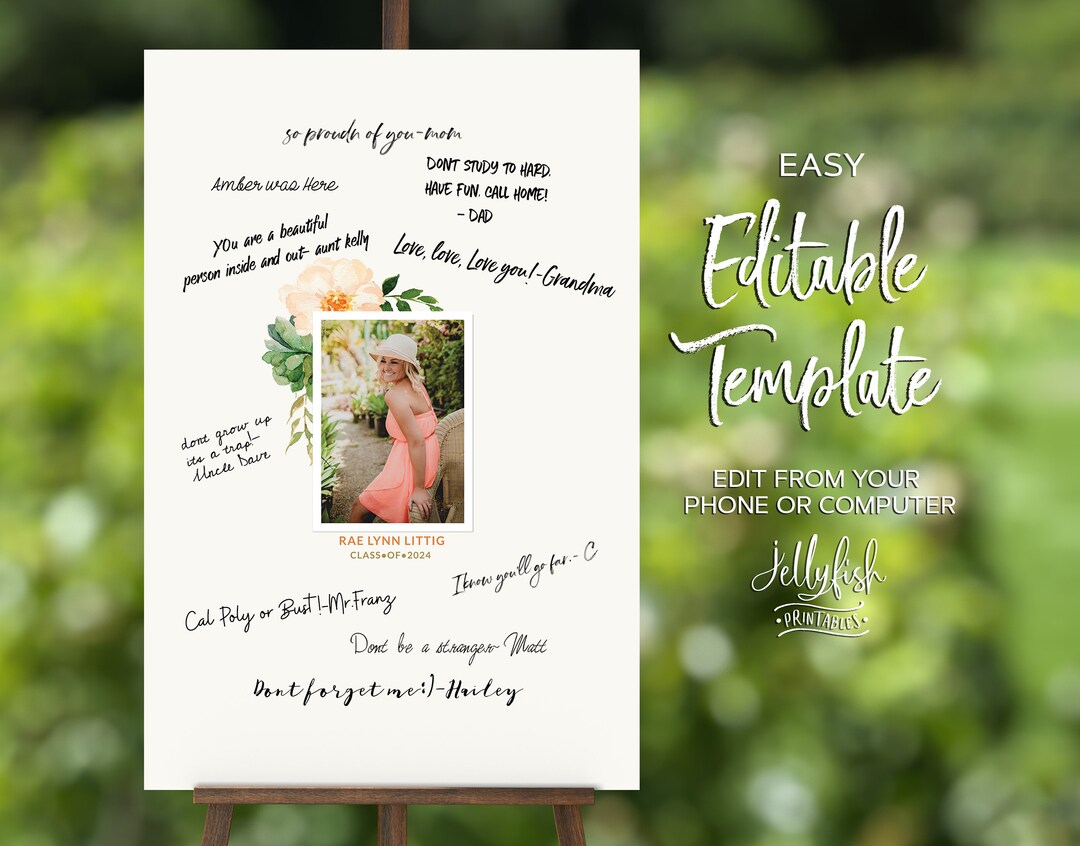 so proudn of you-mom
Amber was Here
DONT STUDY TO HARD.
HAVE FUN. CALL HOME!
- DAD
YOu are a beautiful
person inside and out- aunt kelly
Love, love, Love you!-Grandma
dont grow up
its a trap!-
Uncle Dave
RAE LYNN LITTIG
CLASS•OF•2024
I know you'll go far.- C
Cal Poly or Bust!-Mr.Franz
Dont be a stranger- Matt
Dont forget me:)-Hailey
EASY
Editable
Template
EDIT FROM YOUR
PHONE OR COMPUTER
Jellyfish
•PRINTABLES•